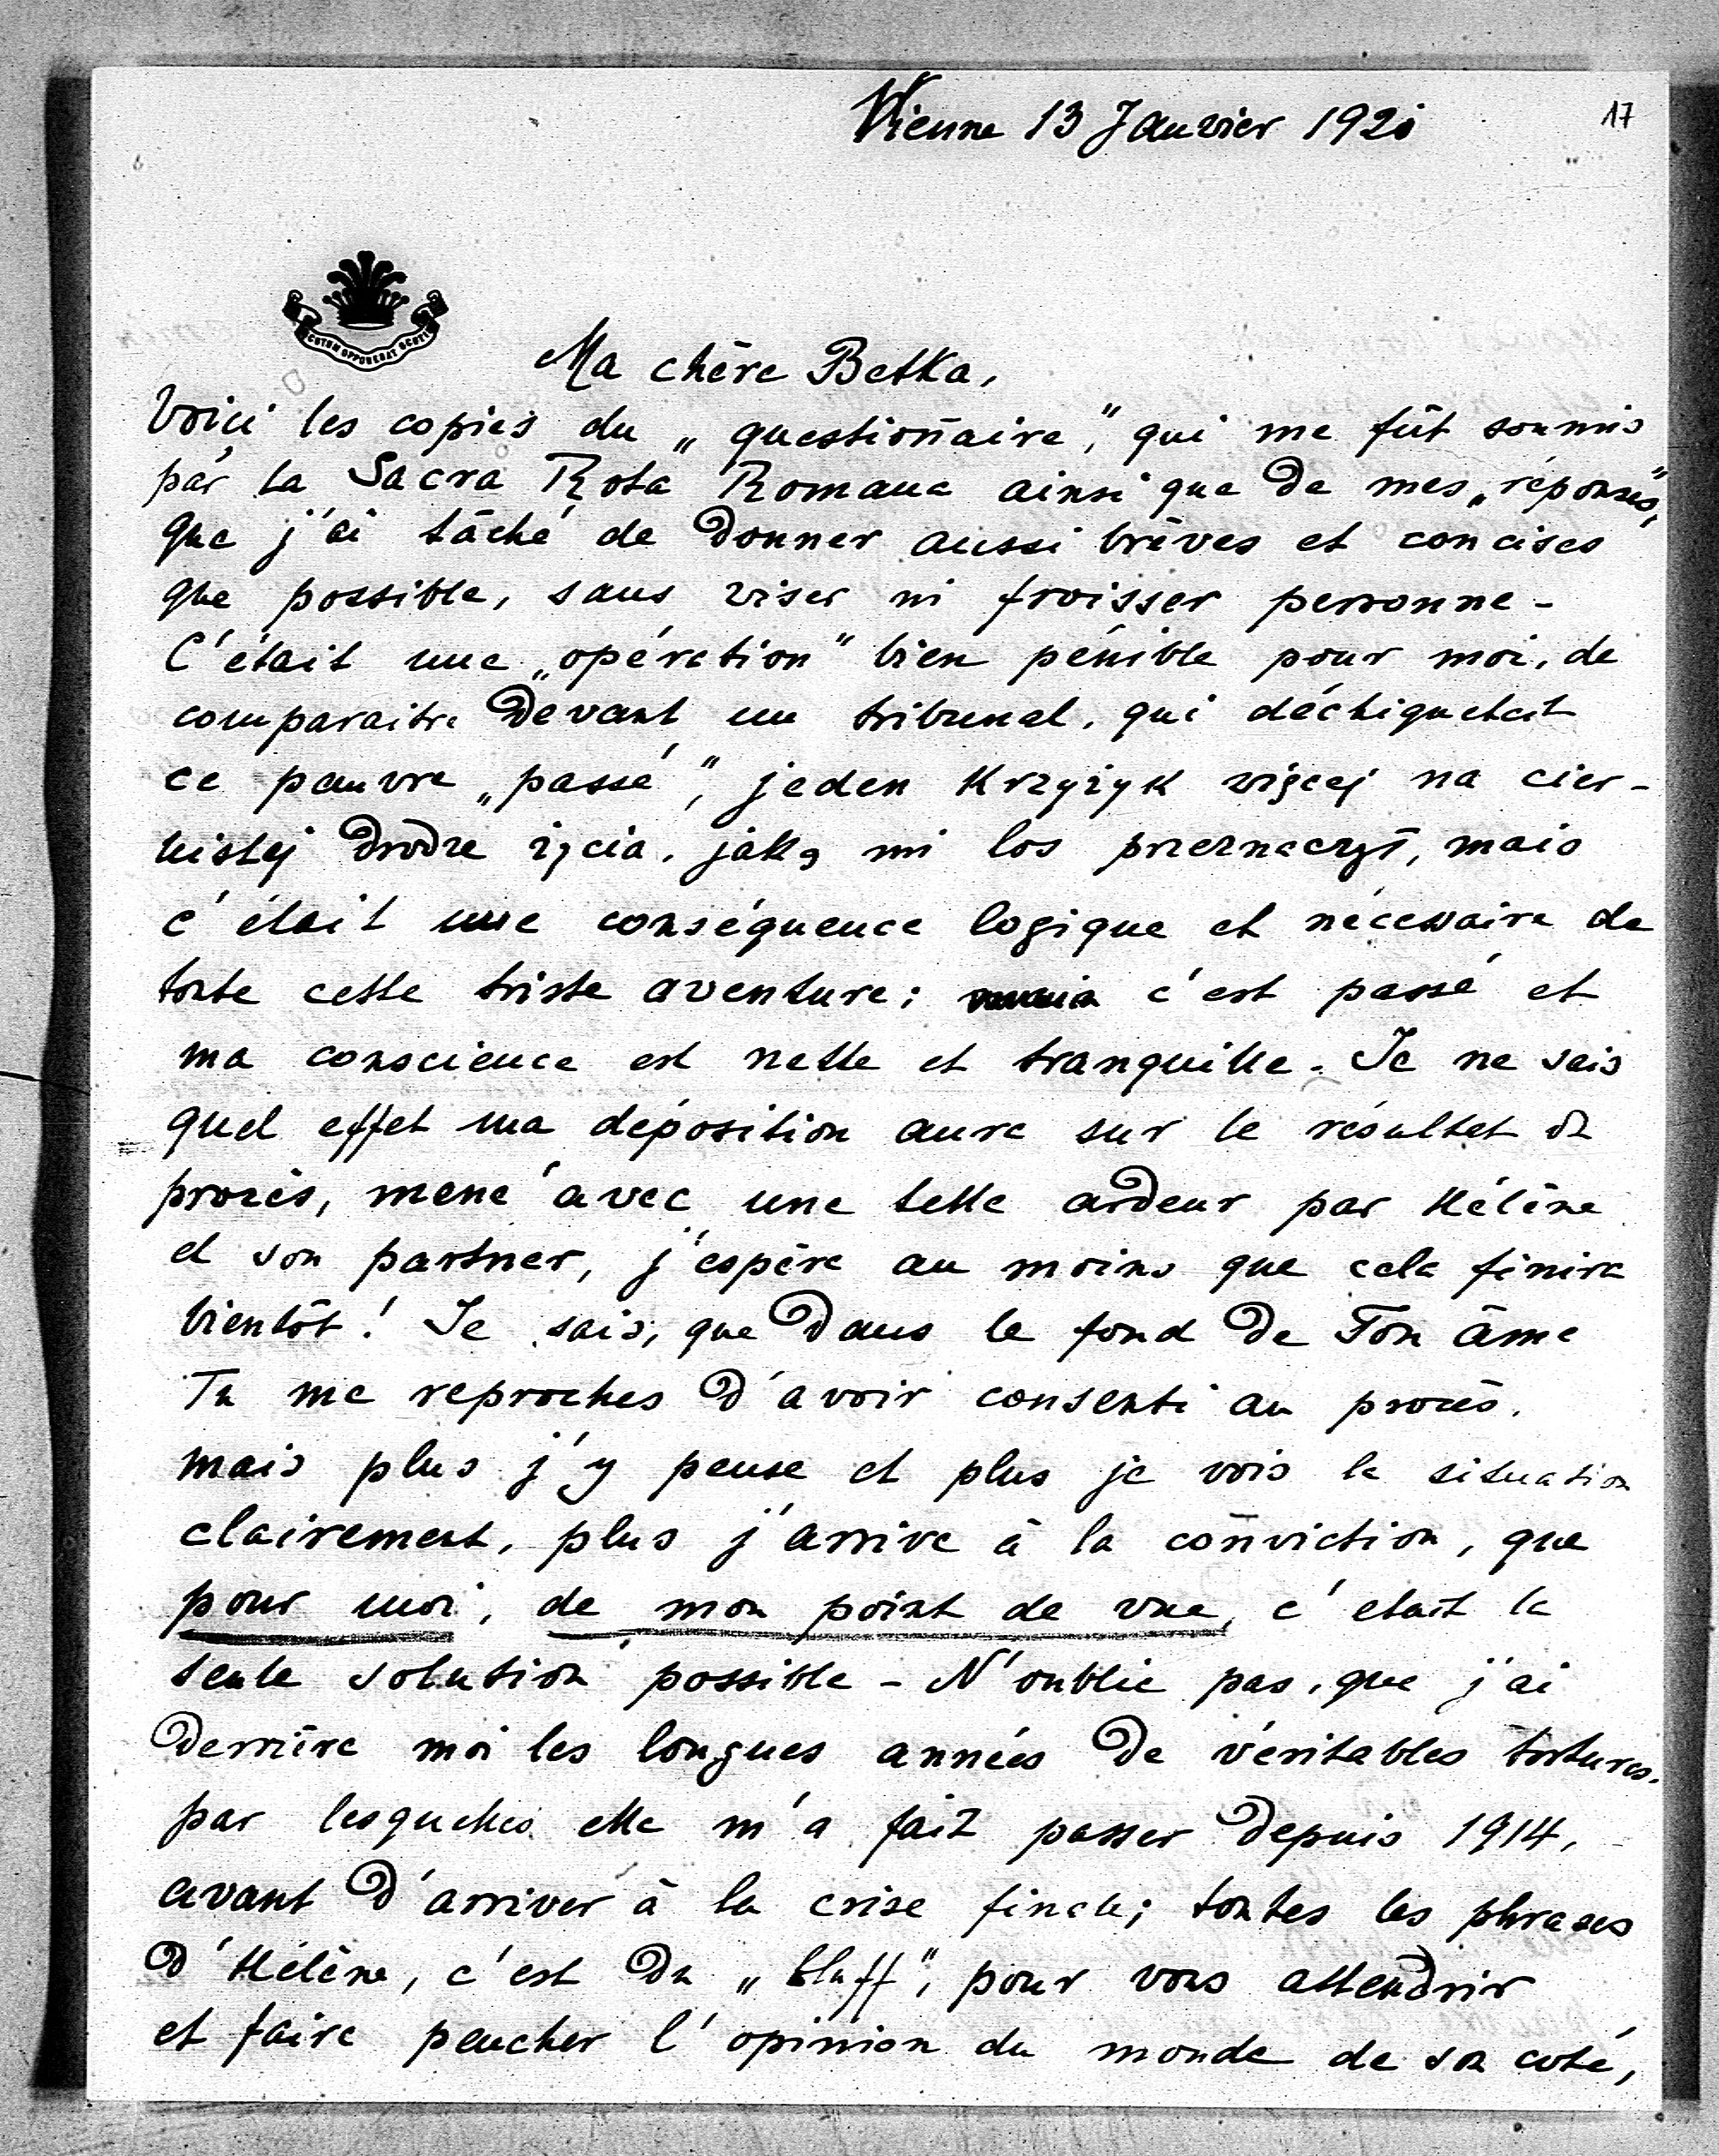 Vienne 13 Janvier 1921
17
SCUTUM OPPONEBAT SCUTIS
Ma chère Betka,
Voici les copies du „questionnaire", qui me fût soumis
par la Sacra Rota Romana ainsi que de mes „réponses",
que j'ai tâché de donner aussi brèves et concises
que possible, sans viser ni froisser personne -
C'était une „opération" bien pénible pour moi, de
comparaitre devant un tribunal, qui déchiquetait
ce pauvre „passé", jeden krzyżyk więcej na cier-
nistej drodze życia, jaką mi los przeznaczył, mais
c'était une conséquence logique et nécessaire de
toute cette triste aventure; c'est passé et
ma conscience est nette et tranquille. Je ne sais
quel effet ma déposition aura sur le résultat du
procès, mené avec une telle ardeur par Hélène
et son partner, j'espère au moins que cela finira
bientôt! Je sais, que dans le fond de Ton âme
Tu me reproches d'avoir consenti au procès,
mais plus j'y pense et plus je vois la situation
clairement, plus j'arrive à la conviction, que
pour moi, de mon point de vue, c'etait la
seule solution possible - N'oublie pas, que j'ai
derrière moi les longues années de véritables tortures,
par lesquelles elle m'a fait passer depuis 1914,
avant d'arriver à la crise finale; toutes les phrases
d'Hélène, c'est du „bluff", pour vous attendrir
et faire pencher l'opinion du monde de son coté,